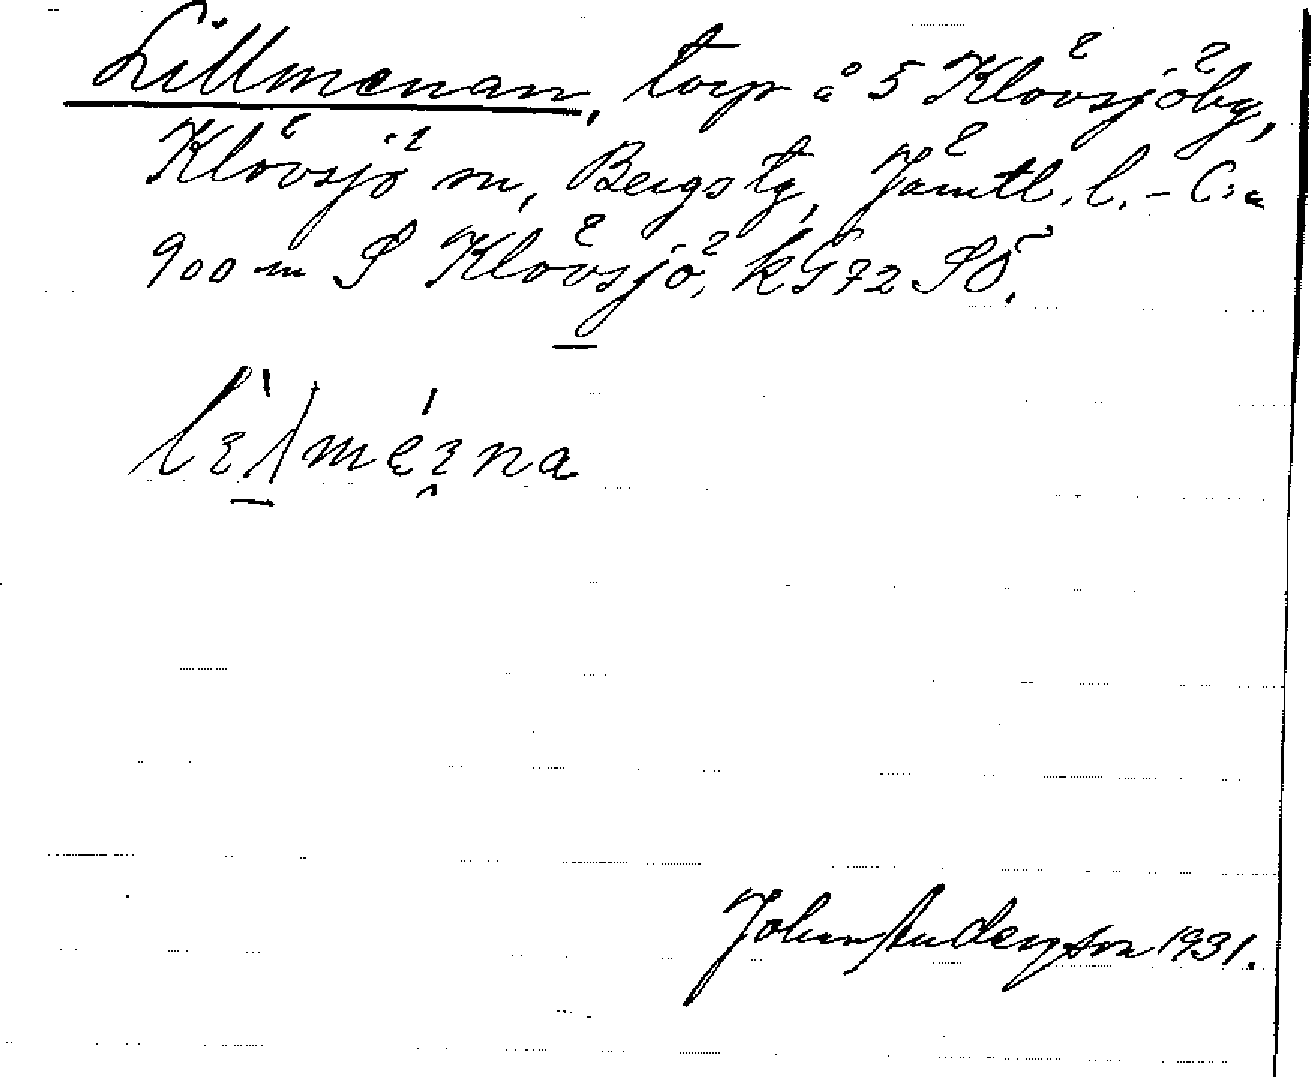 Lillmenan, torp å 5 Klövsjöby,
Klövsjö sn, Bergs tg, Jämtl. l. – C:a
900 m S Klövsjö, kG 72 SÖ.
Johan Anderzon 1931.